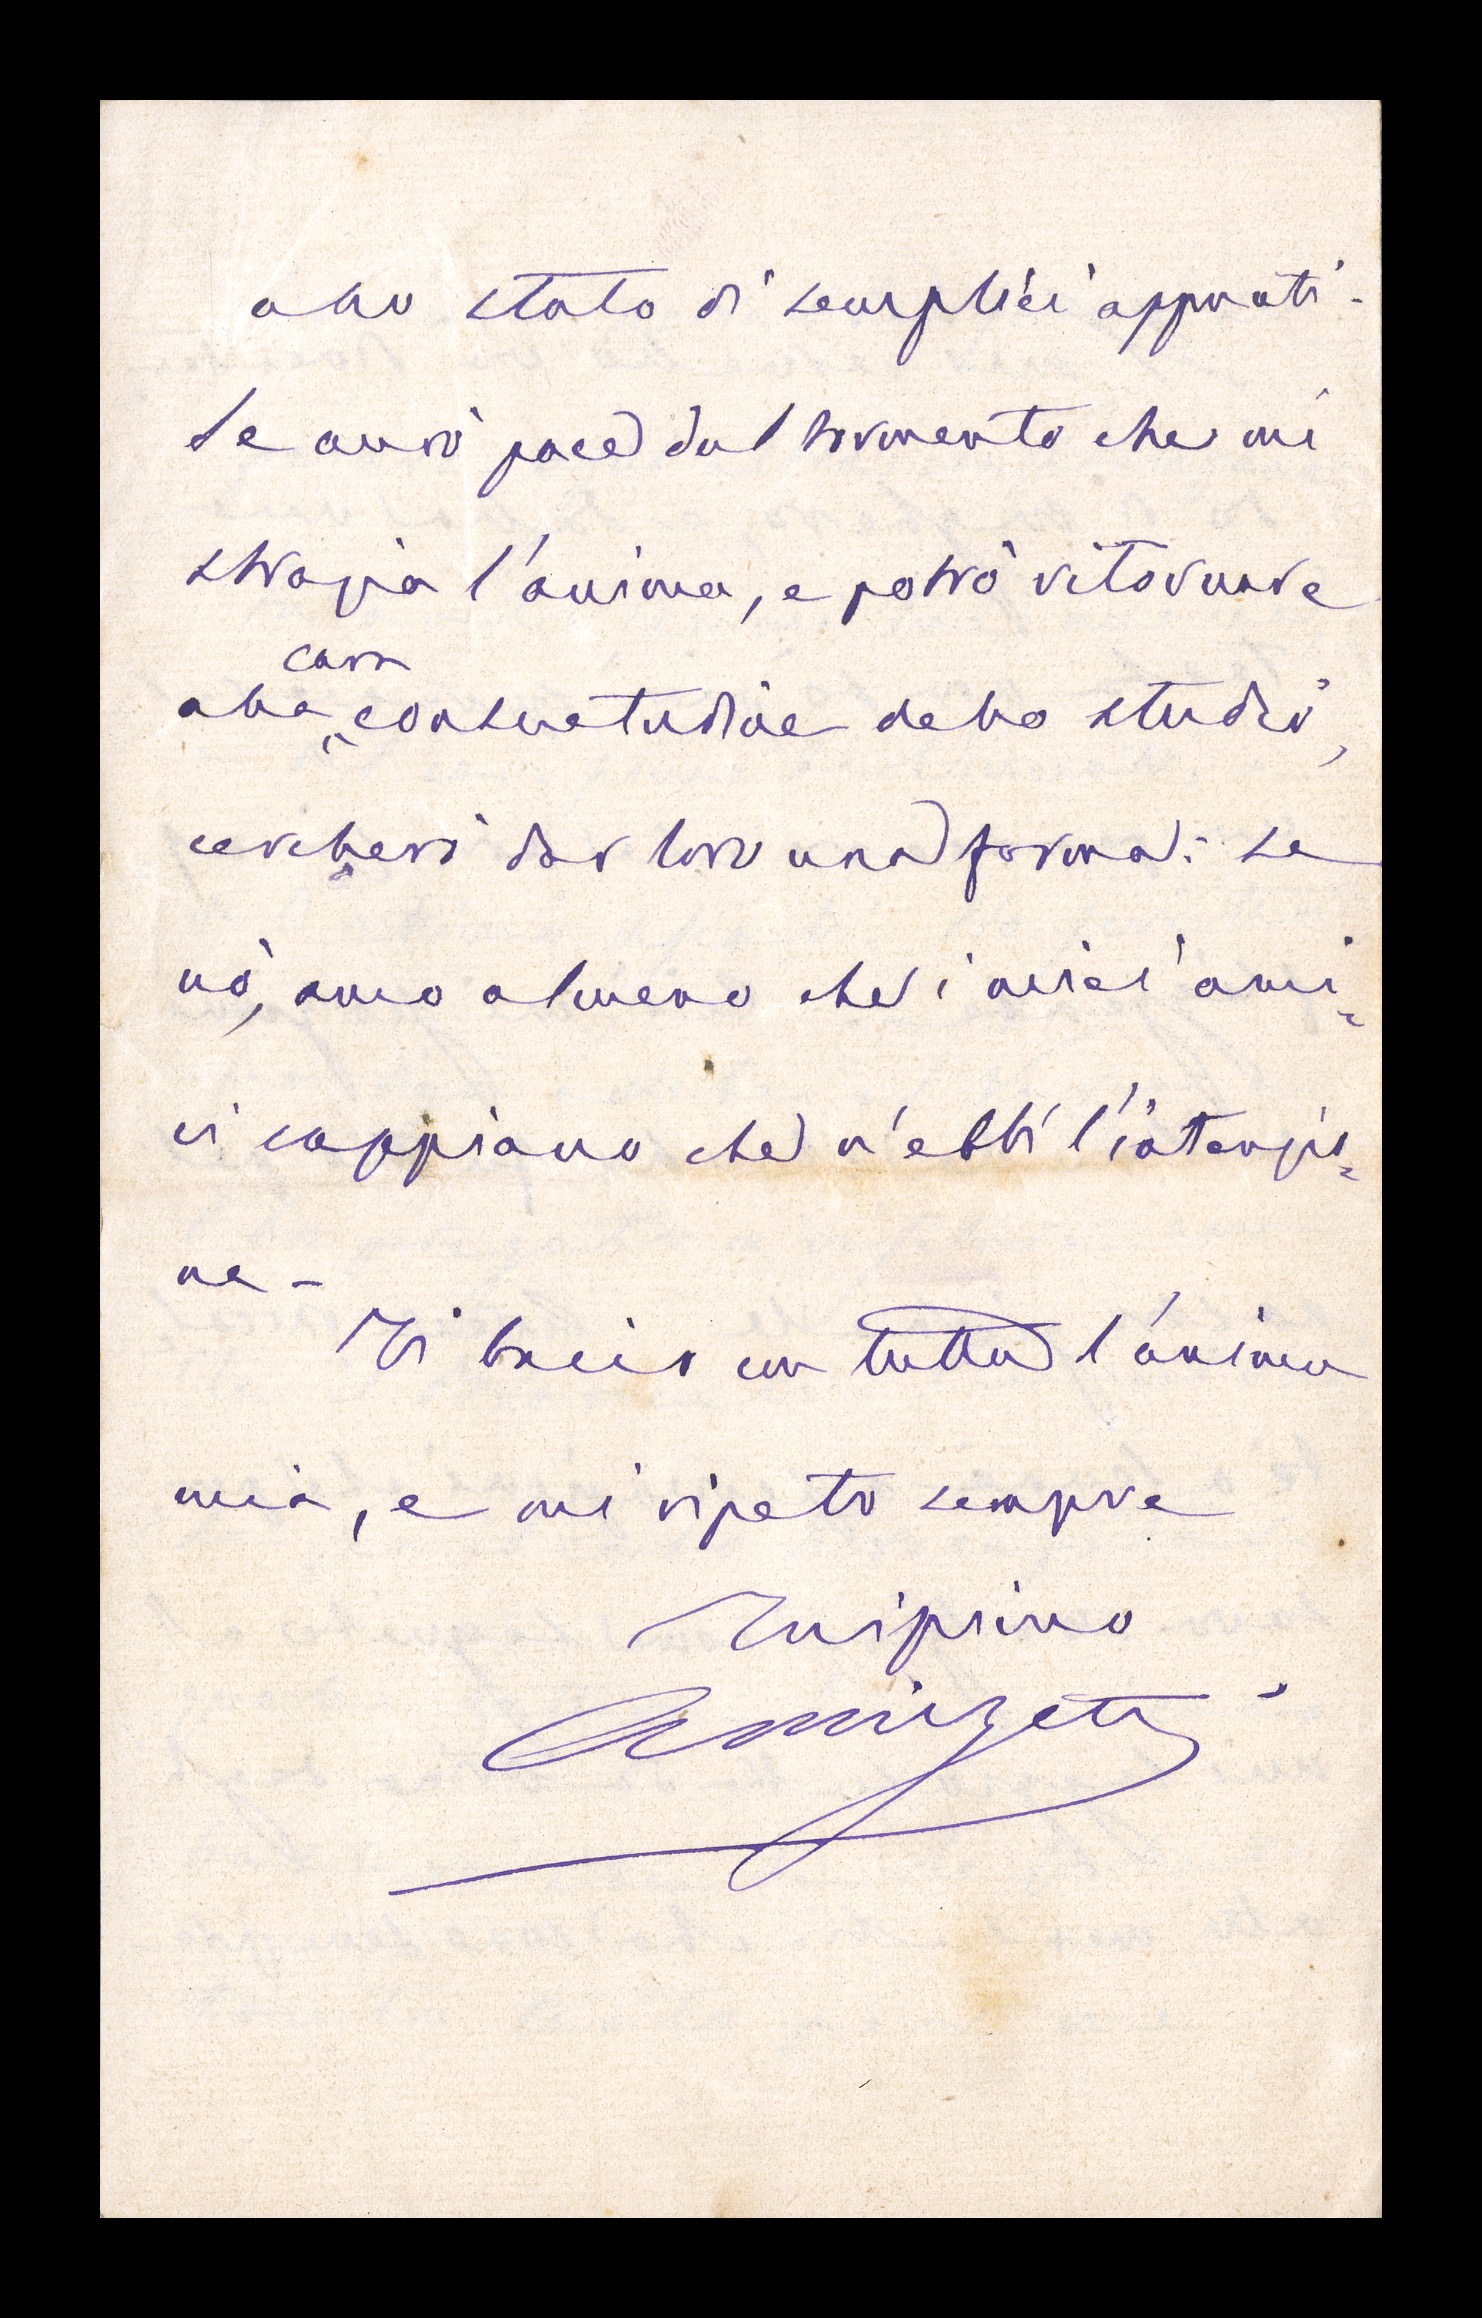 allo stato di semplici appunti.
Se avrò pace dal tormento che mi
strazia l'anima, e potrò ritornare
cara
alla consuetudine dello studio,
cercherò dar loro una forma: se
nò, amo almeno che i miei ami=
ci sappiano che n'ebbi l'intenzio=
ne –
Ti bacio con tutta l'anima
mia, e mi ripeto sempre